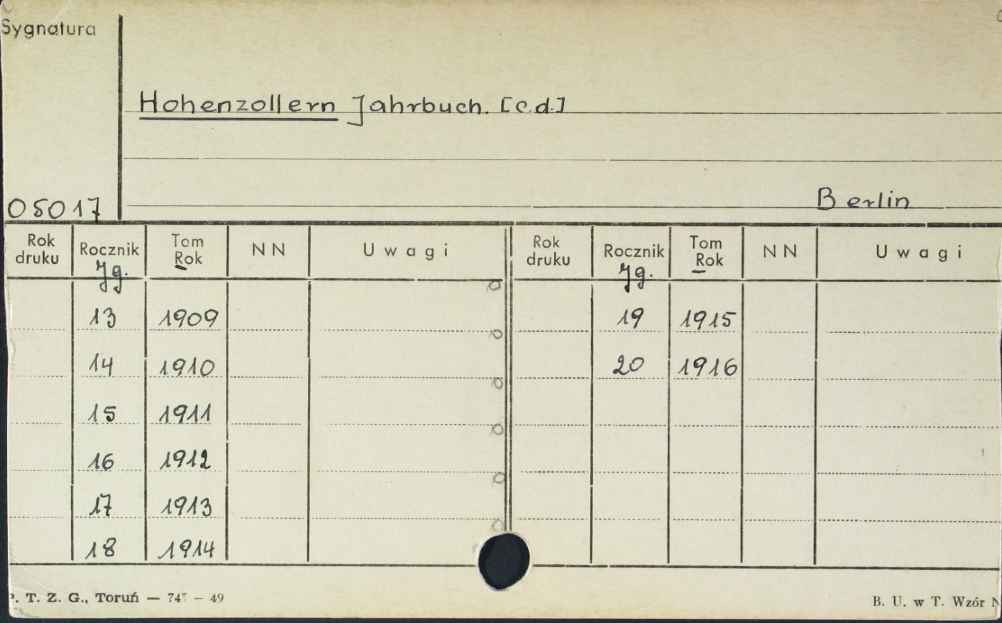 Sygnatura
Hohenzollern Jahrbuch. [c.d.]
05017
Berlin
Rok druku Rocznik Tom Rok NN Uwagi Rok druku Rocznik Tom Rok NN Uwagi
Jg. Jg.
13 1909 19 1915
14 1910 20 1916
15 1911
16 1912
17 1913
18 1914
T. Z. G., Toruń — 49
B. U. w T. Wzór